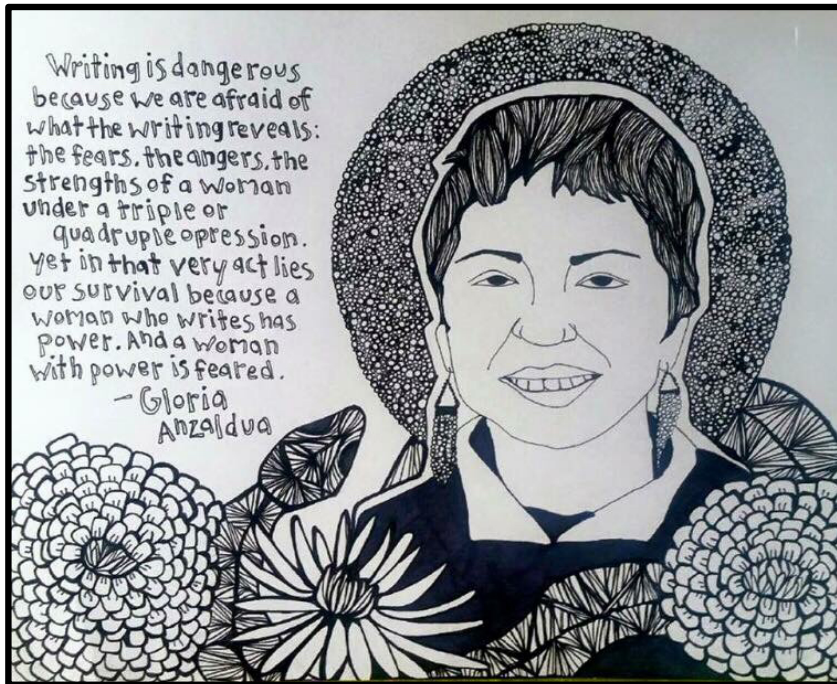 Writing is dangerous
because we are afraid of
what the writing reveals:
the fears, the angers, the
strengths of a woman
under a triple or
quadruple opression.
yet in that very act lies
our survival because a
woman who writes has
power. And a woman
with power is feared.
- Gloria
Anzaldua